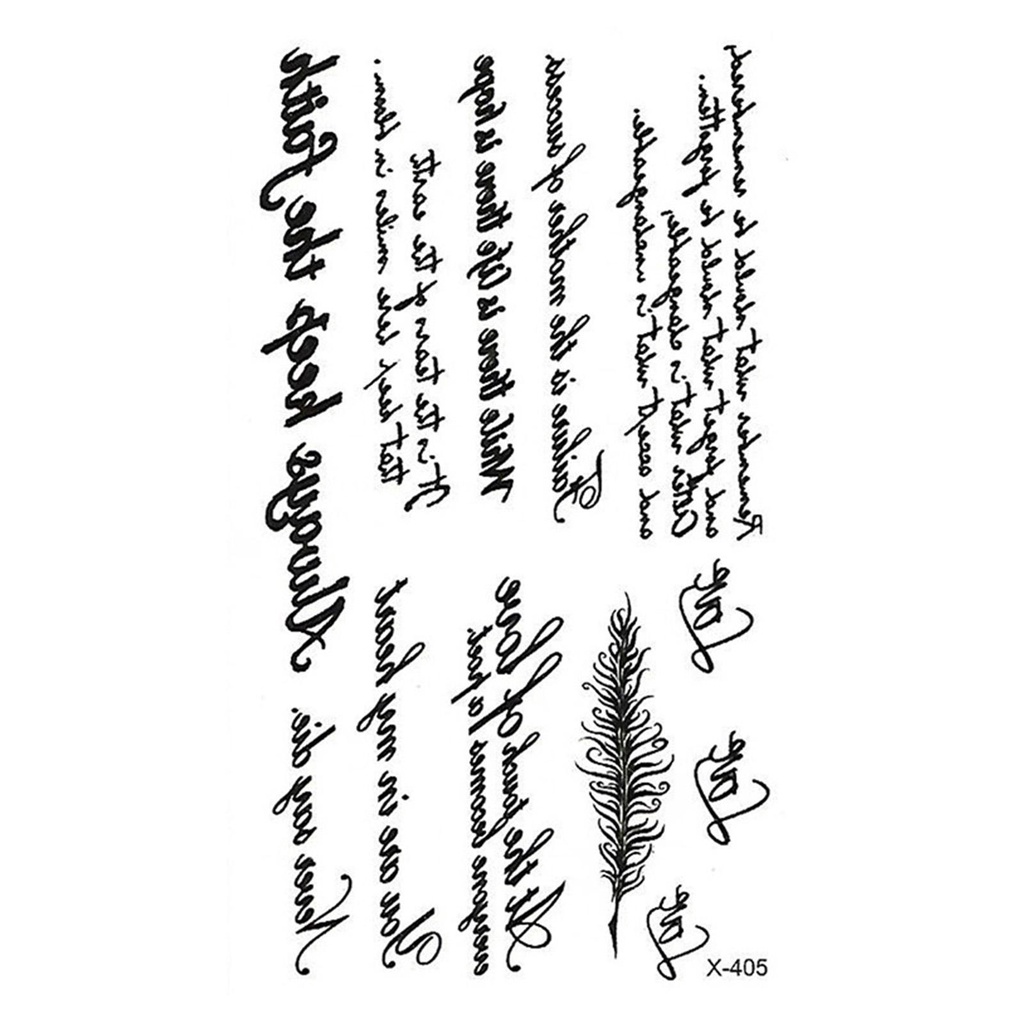 Always keep the Faith
It is the tears of the earth
that keep here smiles in bloom.
While there is life there is hope
Failure is the mother of success
Remember what should be remembered,
and forget what should be forgotten.
Alter what is changeable,
and accept what is unchangeable.
Never say die.
You are in my heart
At the touch of love
everyone becomes a poet.
X-405